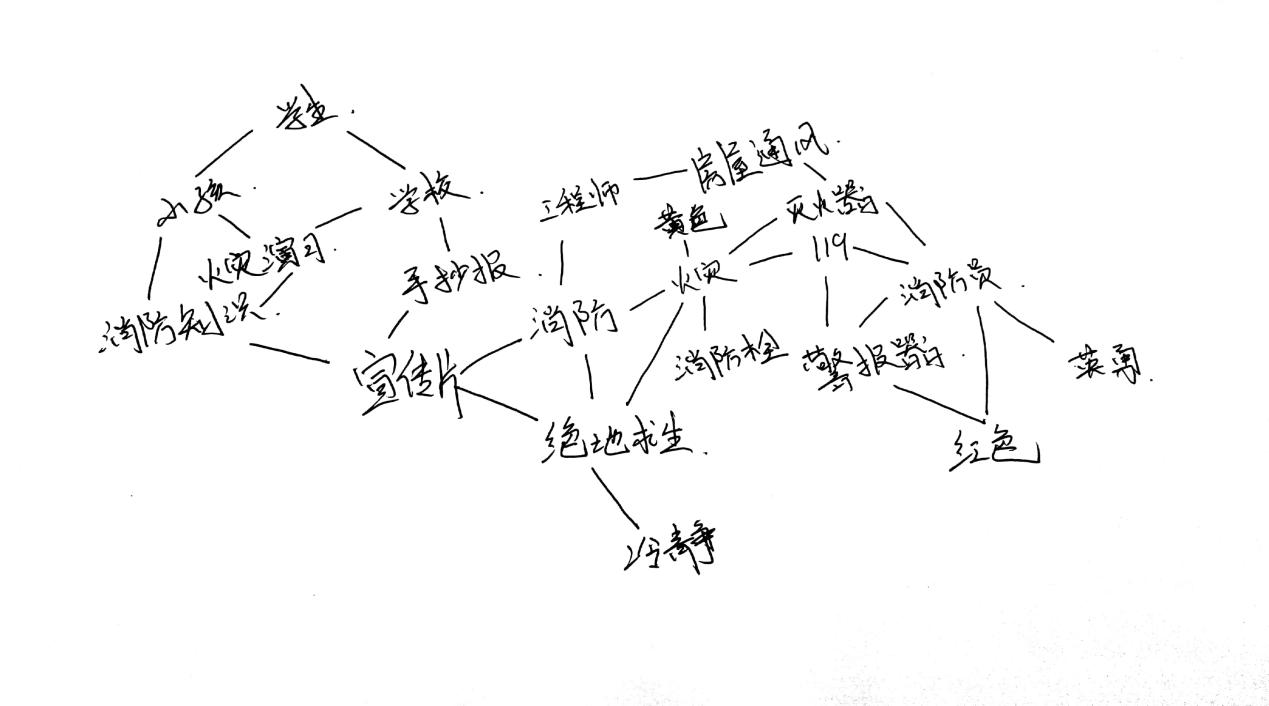 学生.
房屋通风.
小孩.
学校.
工程师
黄色
灭火器
火灾演习.
119
手抄报.
火灾
消防员.
消防知识.
消防
宣传片
消防栓
警报器.
英勇.
绝地求生.
红色
冷静